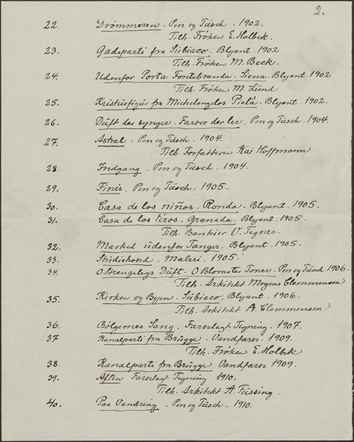 2.
22. Drømmeren. Pen og Tusch. 1902.
Tilh. Frøken E. Holbek.
23. Gadeparti fra Subiaco. Blyant 1902
Tilh. Frøken M. Beck.
24. Udenfor Porta Fontebranda. Siena. Blyant 1902
Tilh. Frøken M. Lund
25. Kristusfigur fra Michelangelos Pietà. Blyant 1902.
26. Duft des synger. Farver der ler. Pen og Tusch. 1904.
27. Astral. Pen og Tusch. 1904.
Tilh. Forfatteren Kai Hoffmann
28. Indgang. Pen og Tusch. 1904.
29. Finis. Pen og Tusch. 1905.
30. Casa de los niños. Ronda. Blyant. 1905.
31. Casa de los tiros. Granada. Blyant. 1905.
Tilh. Bankier V.
32. Marked udenfor Tanger. Blyant. 1905.
33. Studiehoved. Maleri. 1905.
34. O Strengelegs Duft. O Blomsters Toner. Pen og Tusch 1906.
Tilh. Arkitekt Mogens Clemmensen
35. Kirken og Byen. Subiaco. Blyant. 1906.
Tilh. Arkitekt Clemmensen
36. Bølgernes Sang. Farvelagt Tegning. 1907.
37. Kanalparti fra Brügge. Vandfarve. 1909.
Tilh. Frøken E. Holbek
38. Kanalparti fra Brügge. Vandfarve 1909.
39. Aften. Farvelagt Tegning 1910.
Tilh. Arkitekt A. Fussing.
40. Paa Vandring. Pen og Tusch. 1910.